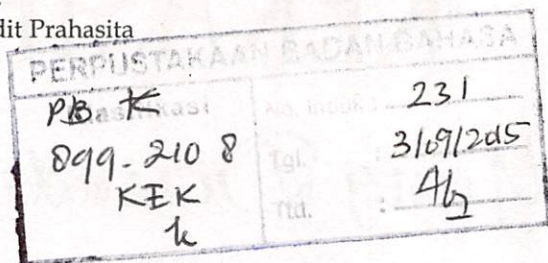 dit Prahasita
PERPUSTAKAAN BADAN BAHASA
Klasifikasi
PB K
899.210 8
KEK
k
No. Induk : 231
Tgl. : 3/09/2015
Ttd. :